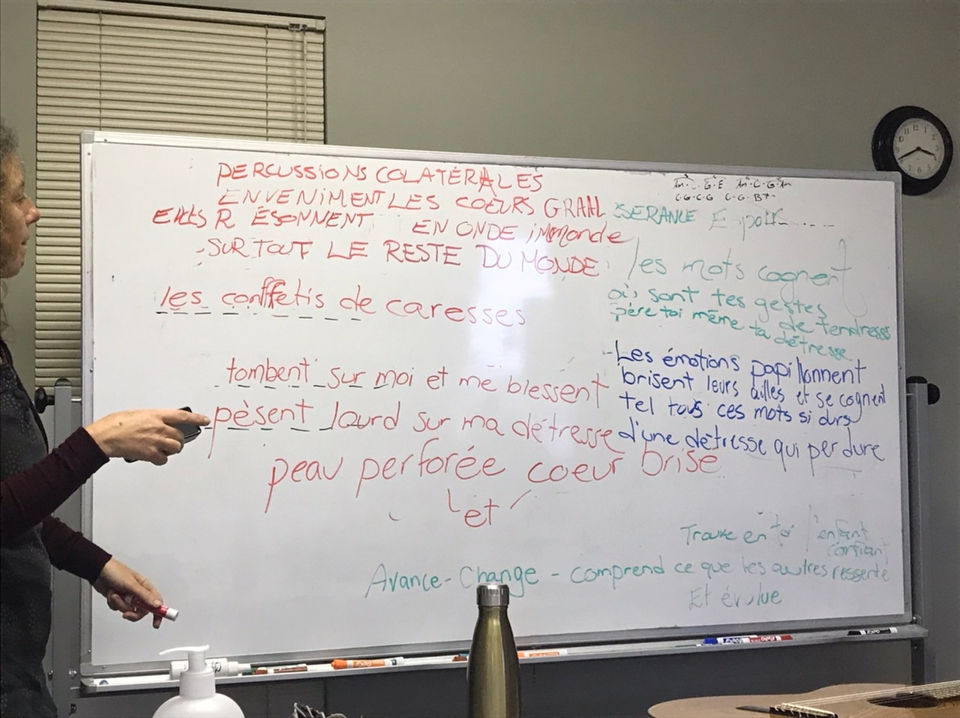 PERCUSSIONS COLATÉRALES
ENVENIMENT LES COEURS
ELLES RÉSONNENT EN ONDE immonde
- SUR TOUT LE RESTE DU MONDE
les conffetis de caresses
tombent sur moi et me blessent
pèsent lourd sur ma détresse
peau perforée coeur brise
et
Am-C-G-E Am-C-G-Am
C-G-C-G C-G-B7-
les mots cognent
où sont tes gestes
de tendresse
père toi même ta
détresse
- Les émotions papillonnent
brisent leurs ailles et se cognent
tel tous ces mots si durs
d'une détresse qui perdure
Trouve en toi l'enfant
confiant
Avance - Change - comprend ce que les autres ressente
Et évolue
EXPO